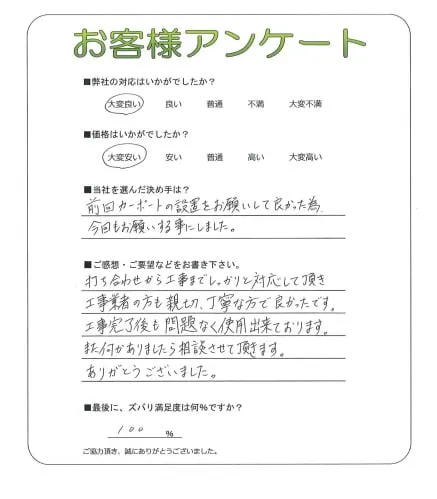 お客様アンケート
■弊社の対応はいかがでしたか？
大変良い 良い 普通 不満 大変不満
■価格はいかがでしたか？
大変安い 安い 普通 高い 大変高い
■当社を選んだ決め手は？
前回カーポートの設置をお願いして良かった為
今回もお願いする事にしました。
■ご感想・ご要望などをお書き下さい。
打ち合わせから工事までしっかりと対応して頂き
工事業者の方も親切、丁寧な方で良かったです。
工事完了後も問題なく使用出来ております。
また何かありましたら相談させて頂きます。
ありがとうございました。
■最後に、ズバリ満足度は何％ですか？
100 ％
ご協力頂き、誠にありがとうございました。